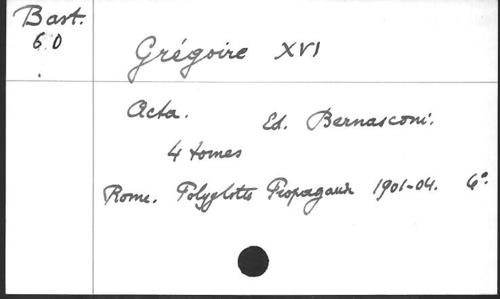 Bast.
60
Grégoire XVI
Acta. Ed. Bernasconi.
4 tomes
Rome. Polyglotte Propagande 1901-04. 6°